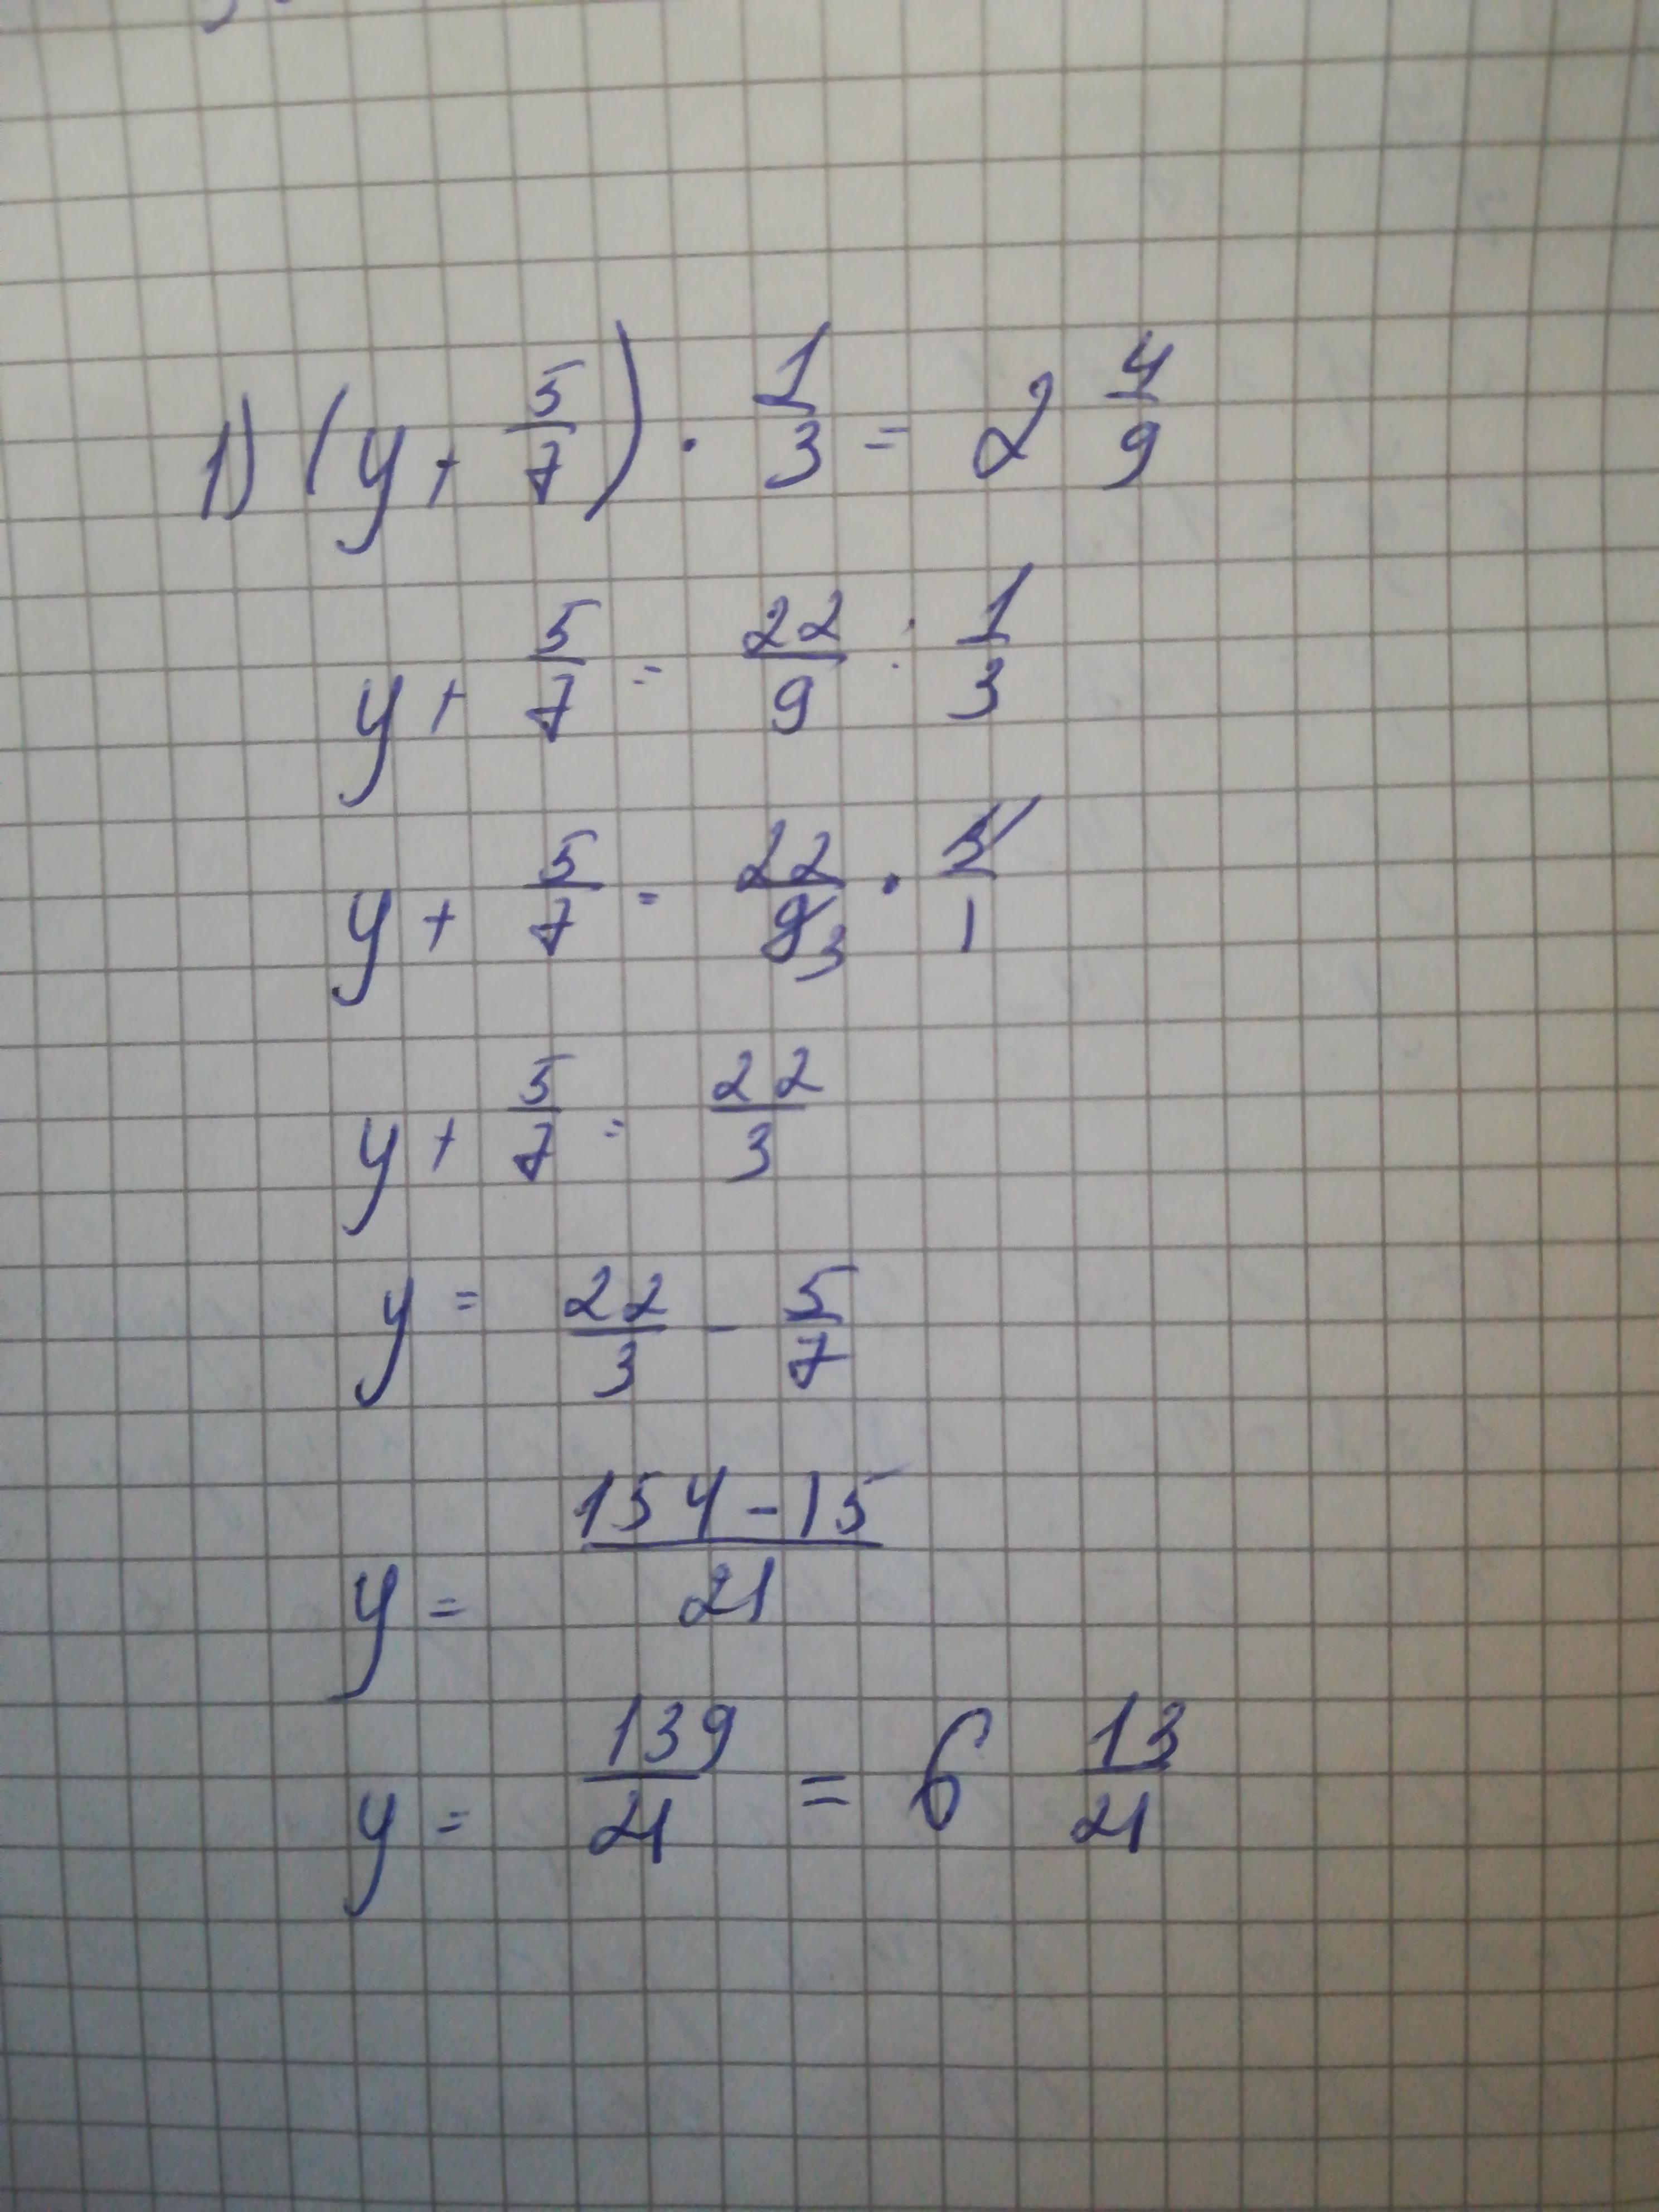 1) (y + 5/7) · 1/3 = 2 4/9
y + 5/7 = 22/9 : 1/3
y + 5/7 = 22/9 3 · 3/1
y + 5/7 = 22/3
y = 22/3 - 5/7
y = 154 - 15/21
y = 139/21 = 6 13/21